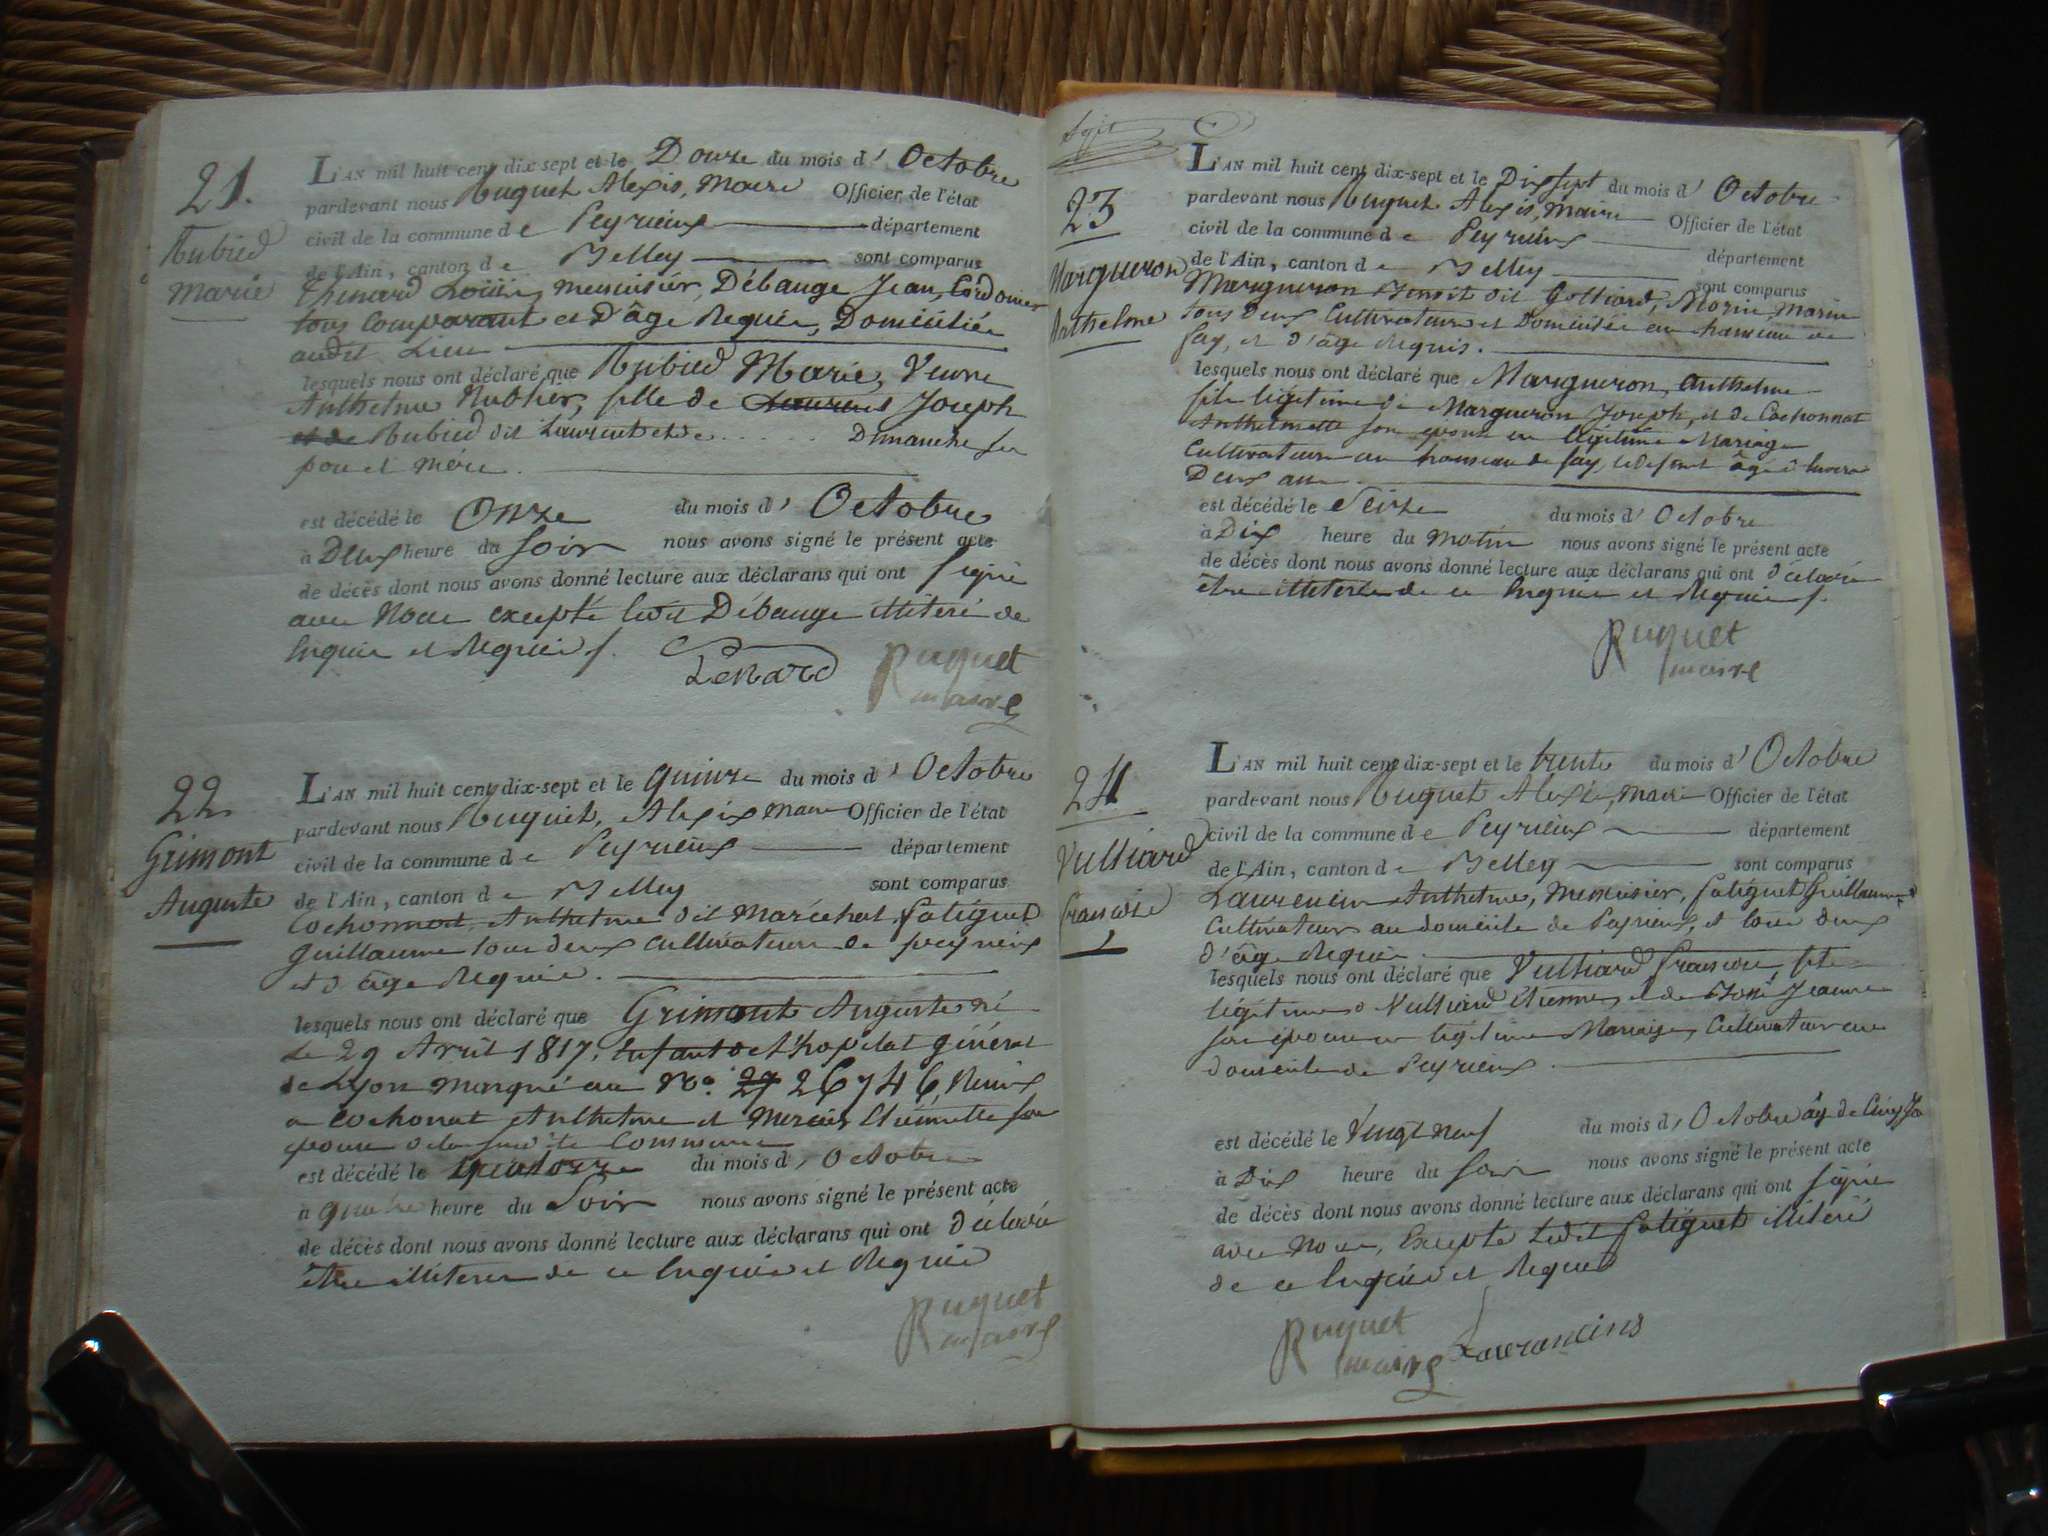 21.
Rubied
Marie
L'AN mil huit cent dix-sept et le Douze du mois d' Octobre
pardevant nous Ruguet Alexis, Maire Officier de l'état
civil de la commune de Peyrieux département
de l'Ain, canton de Belley sont comparus
Thenard Louis, menuisier, Débauge Jean, Cordonier
tous comparant et d'âge Requis, Domiciliés
audit Lieu
lesquels nous ont déclaré que Rubied Marie, Veuve
Anthelme, fille de Laurent Joseph
et de Rubied dit Laurent et de ..... Dimanche ses
pere et mère.
est décédé le Onze du mois d' Octobre
à Deux heure du Soir nous avons signé le présent acte
de décès dont nous avons donné lecture aux déclarans qui ont signé
avec Nous excepté ledit Débauge illiteré de
Enquis et Requis
Lenard Ruguet
maire
22
Grimont
Auguste
L'AN mil huit cent dix-sept et le quinze du mois d' Octobre
pardevant nous Ruguet, Alexis maire Officier de l'état
civil de la commune de Peyrieux département
de l'Ain, canton de Belley sont comparus
Cochonnat, Anthelme dit Maréchal, fatiguet
guillaume tous deux cultivateurs de peyrieux
et d'âge Requis.
lesquels nous ont déclaré que Grimont Auguste né
Le 29 Avril 1817, Enfant de l'hopital général
de Lyon marqué au No. 29 26746, Remis
a Cochonat Anthelme et Mercier Etiennette son
epouse de la susdite Commune
est décédé le quatorze du mois d' Octobre
à quatre heure du Soir nous avons signé le présent acte
de décès dont nous avons donné lecture aux déclarans qui ont déclaré
être illiterés de ce Enquis et Requis
Ruguet
maire
23
Margueron
Anthelme
L'AN mil huit cent dix-sept et le Dixsept du mois d' Octobre
pardevant nous Ruguet Alexis, Maire Officier de l'état
civil de la commune de Peyrieux département
de l'Ain, canton de Belley sont comparus
Margueron Benoit dit Golliard, Morin Marin
tous deux Cultivateurs et Domiciliés au hameau de
fay, et d'âge Requis.
lesquels nous ont déclaré que Margueron, Anthelme
fils légitime de Margueron Joseph, et de Cochonnat
Anthelmette son epouse en légitime Mariage
Cultivateurs au hameau de fay, le defunt âgé d'environ
Deux ans
est décédé le Seize du mois d' Octobre
à Dix heure du Matin nous avons signé le présent acte
de décès dont nous avons donné lecture aux déclarans qui ont déclaré
être illiterés de ce Enquis et Requis
Ruguet
maire
24
Vulliard
francois
L'AN mil huit cent dix-sept et le trente du mois d' Octobre
pardevant nous Ruguet Alexis, Maire Officier de l'état
civil de la commune de Peyrieux département
de l'Ain, canton de Belley sont comparus
Laurencin Anthelme, Menuisier, fatiguet Guillaume
Cultivateur au domicile de Peyrieux, et tous deux
d'âge Requis.
lesquels nous ont déclaré que Vulliard francois, fils
légitime d Vulliard Etienne, et de Jeanne
son épouse en légitime Mariage, Cultivateur au
domicile de Peyrieux.
est décédé le Vingt neuf du mois d' Octobre âgé de Cinq
à Dix heure du Soir nous avons signé le présent acte
de décès dont nous avons donné lecture aux déclarans qui ont signé
avec Nous, Excepté Ledit fatiguet illiteré
de ce Enquis et Requis
Ruguet
maire Laurancins